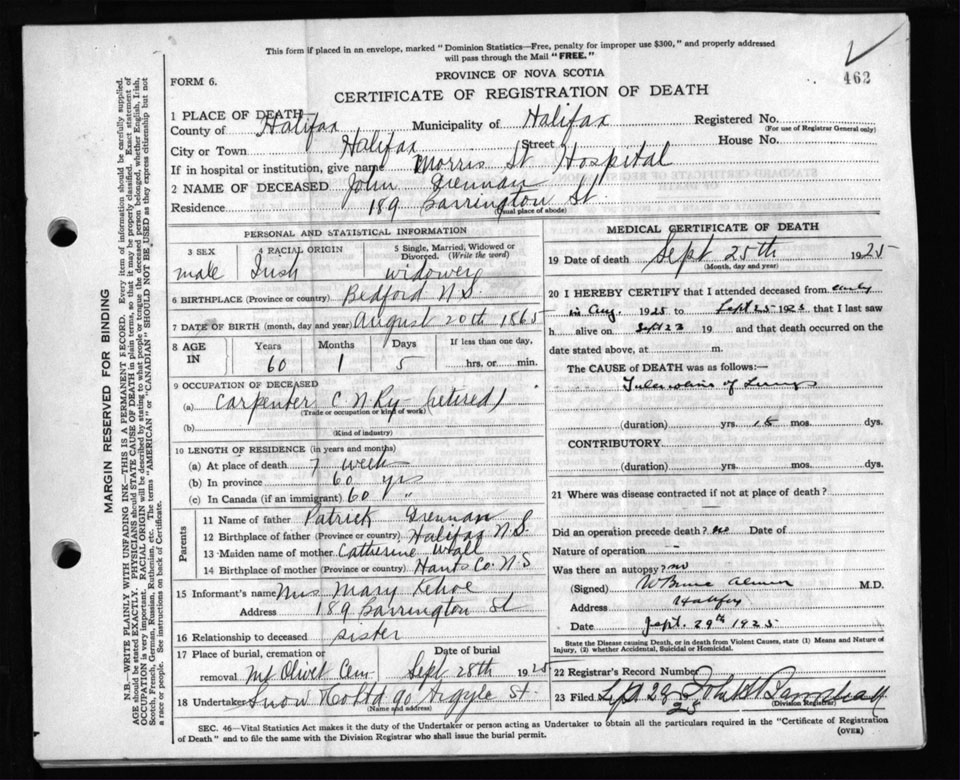 This form if placed in an envelope, marked "Dominion Statistics—Free, penalty for improper use $300," and properly addressed
will pass through the Mail "FREE."
462
FORM 6.
PROVINCE OF NOVA SCOTIA
CERTIFICATE OF REGISTRATION OF DEATH
1 PLACE OF DEATH
County of Halifax Municipality of Halifax Registered No.
(For use of Registrar General only)
City or Town Halifax Street House No.
If in hospital or institution, give name Morris St Hospital
2 NAME OF DECEASED John Drennan
Residence 189 Barrington St
(Usual place of abode)
PERSONAL AND STATISTICAL INFORMATION
3 SEX 4 RACIAL ORIGIN 5 Single, Married, Widowed or
Divorced. (Write the word)
male Irish widower
6 BIRTHPLACE (Province or country) Bedford N.S.
7 DATE OF BIRTH (month, day and year) August 20th 1865
8 AGE IN Years Months Days If less than one day,
60 1 5 hrs. or min.
9 OCCUPATION OF DECEASED
(a) Carpenter C N Ry (retired)
(Trade or occupation or kind of work)
(b)
(Kind of industry)
10 LENGTH OF RESIDENCE (in years and months)
(a) At place of death 7 week
(b) In province 60 yrs
(c) In Canada (if an immigrant) 60 "
Parents
11 Name of father Patrick Drennan
12 Birthplace of father (Province or country) Halifax N.S
13 Maiden name of mother Catherine Wall
14 Birthplace of mother (Province or country) Hants Co. N.S
15 Informant's name Mrs Mary Kehoe
Address 189 Barrington St
16 Relationship to deceased sister
17 Place of burial, cremation or removal Date of burial
Mt Olivet Cem Sept 28th 1925
18 Undertaker Snow & Co Ltd 90 Argyle St.
(Name and address)
MEDICAL CERTIFICATE OF DEATH
19 Date of death Sept 25th 1925
(Month, day and year)
20 I HEREBY CERTIFY that I attended deceased from early
in Aug. 1925 to Sept 25 1925 that I last saw
h alive on Sept 23 19 and that death occurred on the
date stated above, at m.
The CAUSE of DEATH was as follows:—
Tuberculosis of Lungs
(duration) yrs. 15 mos. dys.
CONTRIBUTORY
(duration) yrs. mos. dys.
21 Where was disease contracted if not at place of death?
Did an operation precede death? no Date of
Nature of operation —
Was there an autopsy? no
(Signed) W Bruce Almon M.D.
Address Halifax
Date Sept. 29th 1925
State the Disease causing Death, or in death from Violent Causes, state (1) Means and Nature of
Injury, (2) whether Accidental, Suicidal or Homicidal.
22 Registrar's Record Number
23 Filed Sept. 29
25
(Division Registrar)
SEC. 46—Vital Statistics Act makes it the duty of the Undertaker or person acting as Undertaker to obtain all the particulars required in the "Certificate of Registration
of Death" and to file the same with the Division Registrar who shall issue the burial permit.
(OVER)
MARGIN RESERVED FOR BINDING
N.B.—WRITE PLAINLY WITH UNFADING INK—THIS IS A PERMANENT RECORD. Every item of information should be carefully supplied.
AGE should be stated EXACTLY. PHYSICIANS should STATE CAUSE OF DEATH in plain terms, so that it may be properly classified. Exact statement of
OCCUPATION is very important. RACIAL ORIGIN will be described by stating to what people or tongue the deceased person belonged, whether English, Irish,
Scotch, French, German, Russian, Ruthenian, etc. The terms "AMERICAN" or "CANADIAN" SHOULD NOT BE USED as they express citizenship but not
a race or people. See instructions on back of Certificate.